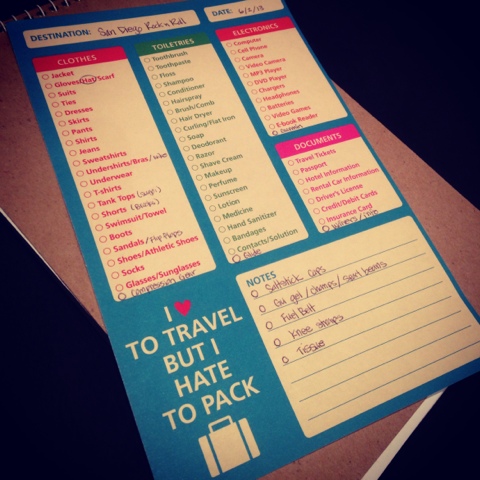 DESTINATION: San Diego Rock n Roll
DATE: 6/2/13
CLOTHES
Jacket
Gloves/Hat/Scarf
Suits
Ties
Dresses
Skirts
Pants
Shirts
Jeans
Sweatshirts
Undershirts/Bras/
Underwear
T-shirts
Tank Tops
Shorts
Swimsuit/Towel
Boots
Sandals/Flip flops
Shoes/Athletic Shoes
Socks
Glasses/Sunglasses
Compression gear
TOILETRIES
Toothbrush
Toothpaste
Floss
Shampoo
Conditioner
Hairspray
Brush/Comb
Hair Dryer
Curling/Flat Iron
Soap
Deodorant
Razor
Shave Cream
Makeup
Perfume
Sunscreen
Lotion
Medicine
Hand Sanitizer
Bandages
Contacts/Solution
ELECTRONICS
Computer
Cell Phone
Camera
Video Camera
MP3 Player
DVD Player
Chargers
Headphones
Batteries
Video Games
E-book Reader
DOCUMENTS
Travel Tickets
Passport
Hotel Information
Rental Car Information
Driver's License
Credit/Debit Cards
Insurance Card
NOTES
Saltstick Caps
Gu gel/chomps/sport beans
Fuel Belt
Knee straps
Tissue
I ♥
TO TRAVEL
BUT I
HATE
TO PACK